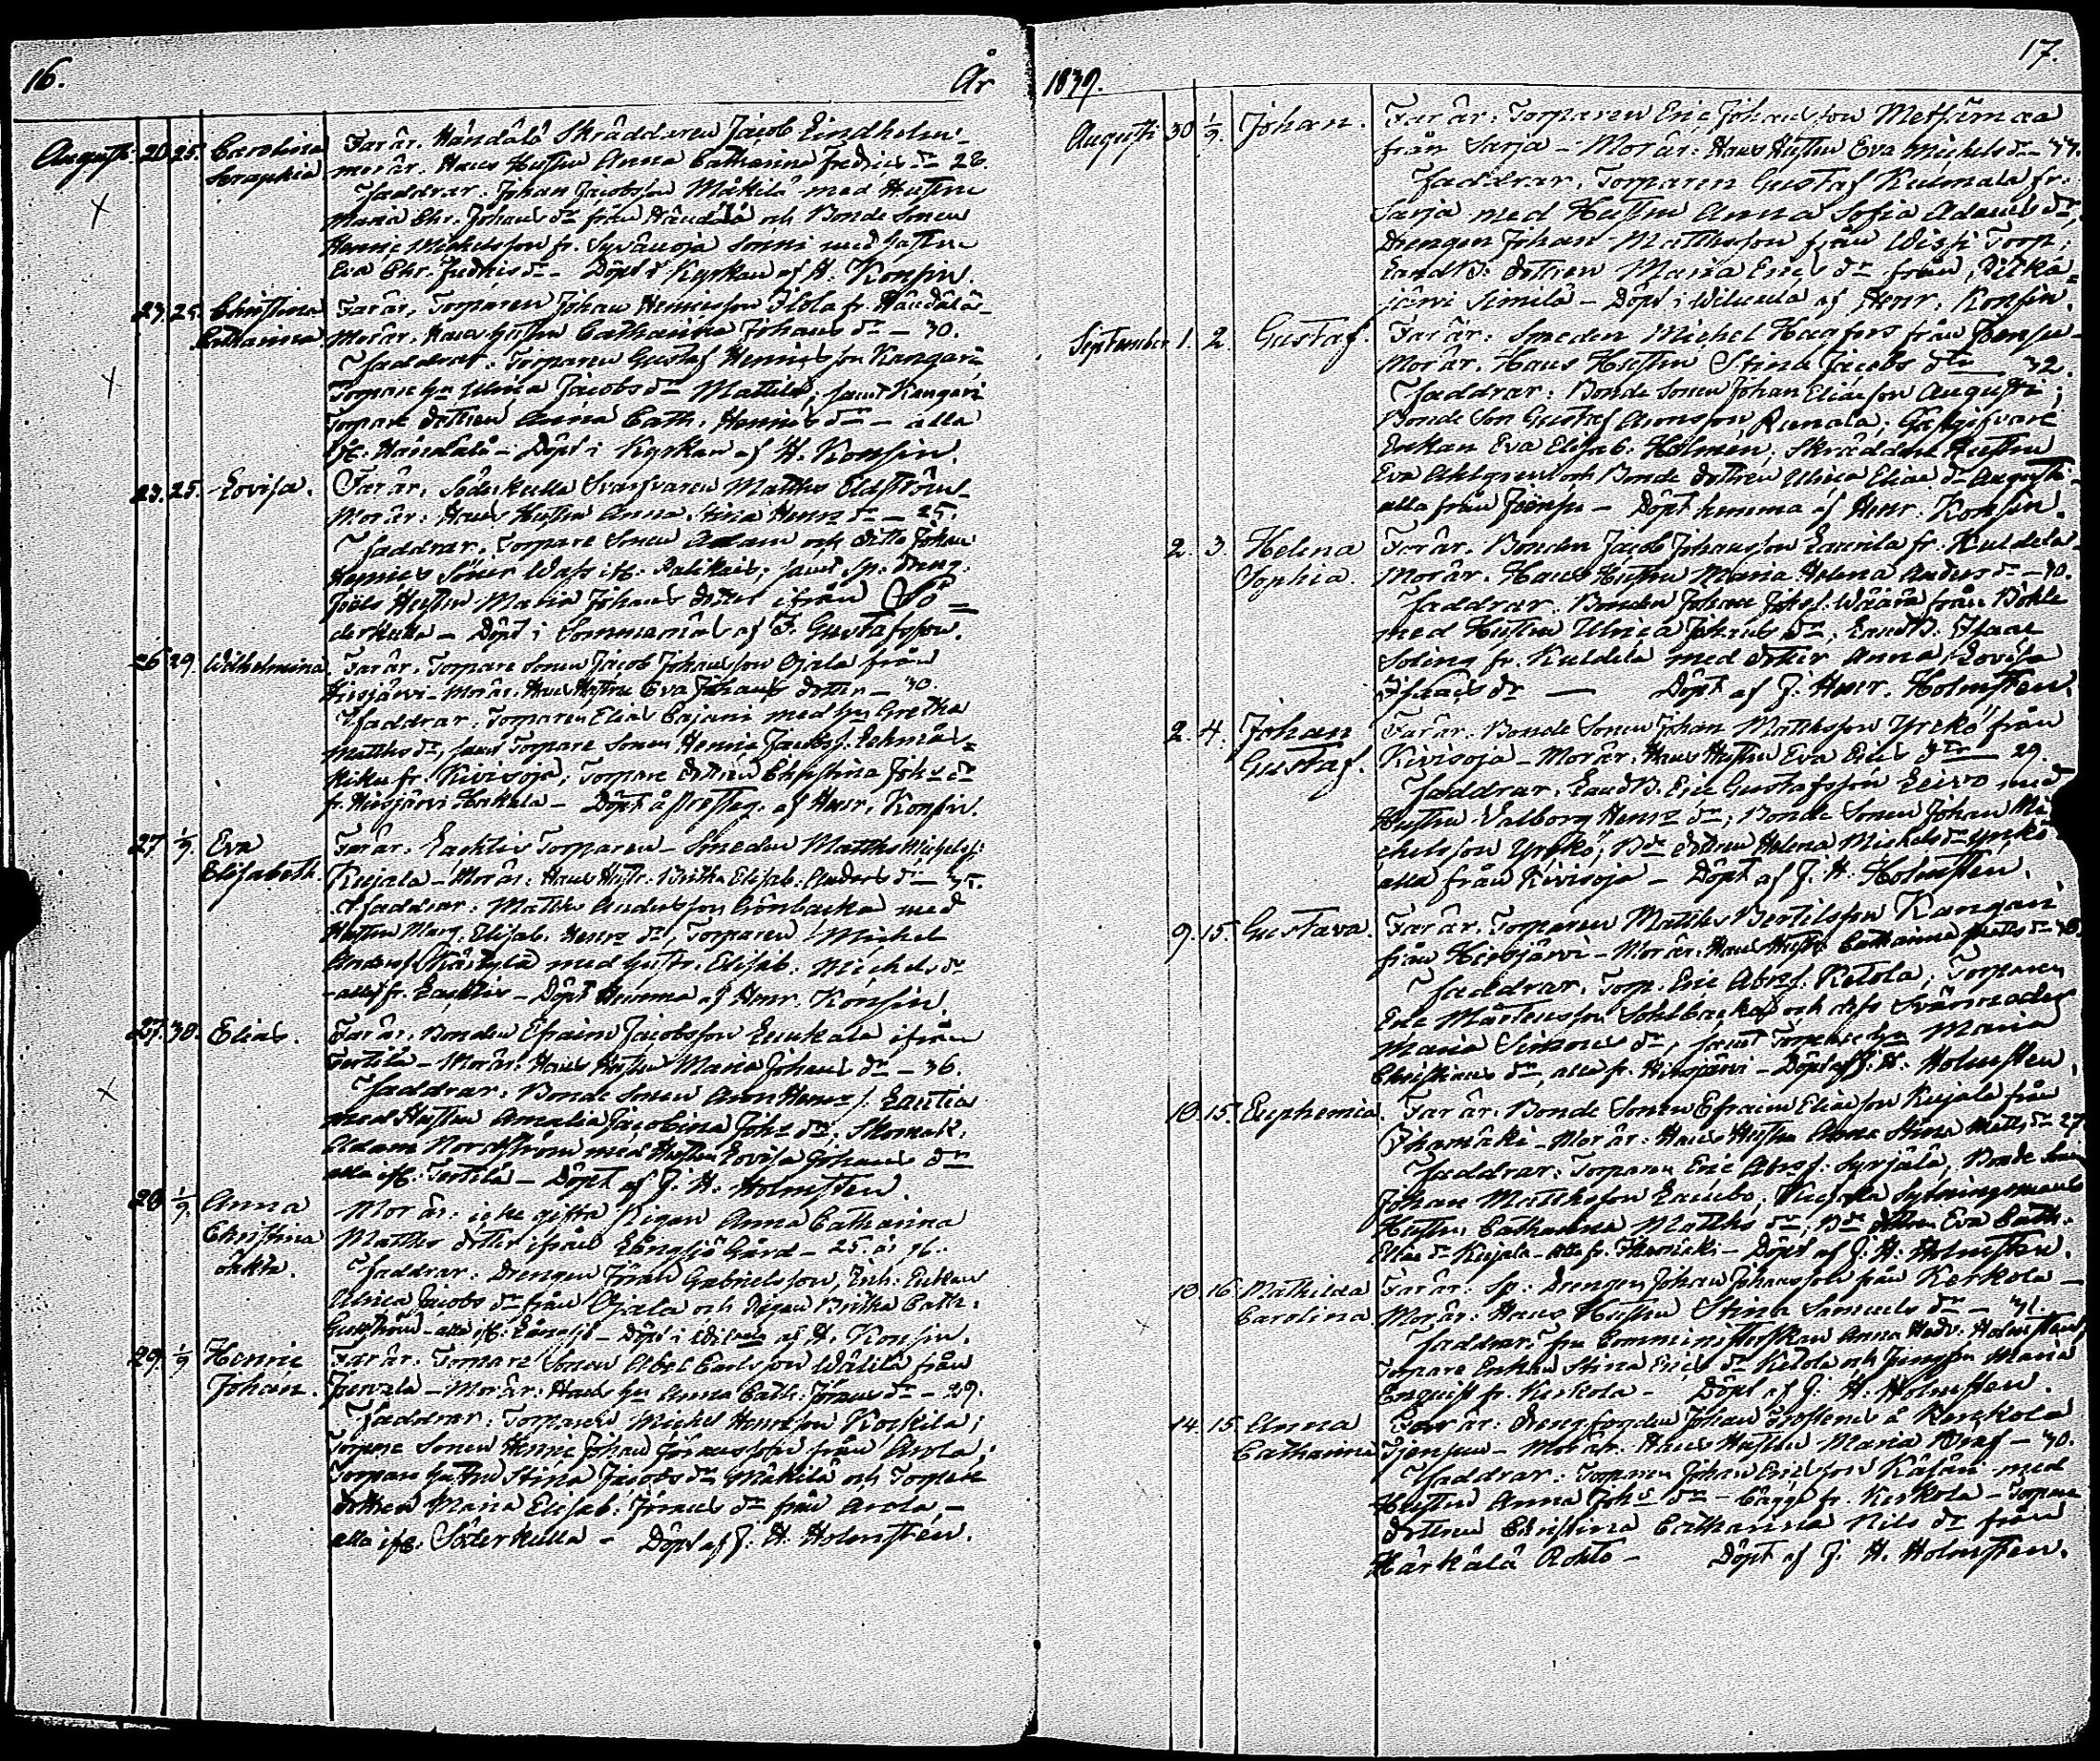 16.
År
Augusti 20 25. Carolina Far är. Händälä Skräddaren Jacob Lindholm-
Seraphia. morär. Hans Hustru Anna Catharina Fredrics dr 28.
Faddrar: Johan Jacobsson Mäkilä med Hustru
Maria Chr. Johans dr från Händälä och Bonde Sonen
Henric Michelsson fr. Syvänoja Sonni med hustru
Eva Chr. Fredrics dr - Döpt i Kyrkan af H. Konsin.
23. 25. Christina Far är, Torparen Johan Henricsson fr. Händälä-
Catharina Morär. Hans hustru Catharina Johans dr - 30.
Faddrar: Torparen Gustaf Henrics son Kangari
Torpare hu Ulrica Jacobs dr Mattila, samt Kangari
Torpare dottren Anna Cath. Henrics dr - alla
fr. Händälä - Döpt i Kyrkan af H. Konsin.
23. 25. Lovisa. Far är, Söderkulla Svarfvaren Matths Eldström-
Morär: Hans Hustru Anna Stina Henr dr - 25.
Faddrar. Torpare Sonen Adam och ditto Johan
Henrics Söner ifr. samt Sp: Dreng.
Joels Hustru Maria Johans dotter ifrån Sö=
derkulla - Döpt i Sommernäs af F. Gustafsson.
26 29. Wilhelmina. Far är, Torpare Sonen Jacob Johansson Ojala från
Hirsjärvi - Morär. Hans Hustru Eva Johans dotter - 30
Faddrar. Torparen Elias Cajani med hu Gretha
Matths dr, samt Torpare Sonen Henric Jacobss.
fr. Kivisoja, Torpare dottren Christina Johs dr
fr. Hirsjärvi Hakala - Döpt å prestg. af Henr. Konsin.
27 1/9. Eva Far är. Torparen - Smeden Matths Michelss:
Elisabeth. Kujala - Morär: Hans Hustr: Britha Elisab: Anders dr - 35.
Faddrar: Matths Andersson Grönbacka med
Hustru Marg. Elisab. Henr dr, Torparen Michel
Anderss. med hustr. Elisab: Michels dr
- alla fr. - Döpt hemma af Henr. Konsin.
27. 30. Elias. Far är. Bonden Efraim Jacobsson ifrån
Terttilä - Morär: Hans Hustru Maria Johans dr - 36.
Faddrar: Bonde Sonen Aron Henr s. Lautia
med Hustru Amalia Jacobina Johs dr; Skomak.
Adam Nordström med Hustru Lovisa Johans dr
alla ifr. Terttilä - Döpt af J. H. Holmsten.
28 1/9. Anna Mor är: icke gifta Pigan Anna Catharina
Christina Matths dotter ifrån Långsjö Gård - 25 år
oäkta. Faddrar: Drengen Göran Gabrielsson, Inh: Enkan
Ulrica Jacobs dr från Ojala och Pigan Britha Cath.
- alla ifr: Långsjö - Döpt i af H. Konsin.
29. 1/9 Henric Far är. Torpare Sonen Abel Carlsson Wälilä från
Johan. - Morär: Hans hu Anna Cath: Jörans dr - 29.
Faddrar: Torparen Michel Henrsson Koskila;
Torpare Sonen Henric Johan Göransson från Arola;
Torpare hustru Stina Jacobs dr Mäkilä och Torpare
dottren Maria Elisab: Jörans dr från Arola -
alla ifr. Söderkulla - Döpt af J. H. Holmsten.
1839.
17.
Augusti 30 1/9. Johan. Far är. Torparen Eric Johansson Metsämaa
från Sarja - Morär: Hans Hustru Eva Michels dr -
Faddrar. Torparen Gustaf Kulmala fr.
Sarja med Hustru Anna Sofia Adams dr,
Drengen Johan Matthsson från Wisti Torp;
LandB: dottren Maria Erics dr från Pitkä=
järvi Similä - Döpt i af Henr. Konsin.
September 1. 2. Gustaf. Far är: Smeden Michel Hagfors från
Morär. Hans Hustru Stina Jacobs dtr 32.
Faddrar: Bonde Sonen Johan Eliasson Augusti;
Bonde Son Gustaf Aronsson Runala; Gästgifvare
Enkan Eva Elisab: Holmén; Skräddare Hustru
Eva Ahlgren och Bonde dottren Ulrica Eliae dr Augusti-
alla från - Döpt hemma af Henr. Konsin.
2. 3. Helena Far är. Bonden Jacob Johansson Laurila fr. Kuldela
Sophia. Morär. Hans Hustru Maria Helena Anders dr - 40.
Faddrar. Bonden Johan Johss: Wäärä från
med Hustru Ulrica Johans dr; LandB: Isaac
Soling fr. Kuldela med dotter Anna Lovisa
Isaacs dr — Döpt af J. Henr. Holmsten.
2. 4. Johan Far är. Bonde Sonen Johan Matthsson Yrckö från
Gustaf. Kivisoja - Morär. Hans Hustru Eva Erics dr 29.
Faddrar: LandB. Eric Gustafsson Leivo med
Hustru Valborg Henr dr; Bonde Sonen Johan Mi
chelsson Yrckö; B dottren Helena Michels dr Yrckö
alla från Kivisoja - Döpt af J. H. Holmsten.
9. 15. Gustava. Far är. Torparen Matths Bertilsson Kangari
från Hirsjärvi - Morär: Hans Hustru Catharina
Faddrar, Torp. Eric Abrss. Ketola; Torparen
Eric Mårtensson Sahlbacka och dess Svärmoder
Maria Simons dr, samt Torpare hu Maria
Christians dr, alla fr. Hirsjärvi - Döpt af J. H. Holmsten.
10. 15. Euphemia. Far är. Bonde Sonen Efraim Eliasson Kujala från
- Morär: Hans Hustru Anna Stina Matths dr 27
Faddrar: Torparen Eric Abrss: Syrjälä; Bonde Sonen
Johan Matthsson Kujala Sytningsmans
Hustru Catharina Matths dr; B dottren Eva Cath.
Eliae dr Kujala - alla fr. - Döpt af J. H. Holmsten.
10. 16. Mathilda Far är. Sp: Drengen Johan Johansson från Kerkola -
Carolina Morär: Hans Hustru Stina Samuels dr - 31.
Faddrar: Fru Comministerskan Anna Hedv: Holmsten;
Torpare Enkan Stina Erics dr Ketola och Jungfru Maria
Enquist fr. Kerkola - Döpt af J. H. Holmsten.
14. 15. Anna Far är: Drengfogden Johan å Kerckola
Catharina - Morär. Hans Hustru Maria - 30.
Faddrar: Torparen Johan Ericsson med
Hustru Anna Johs dr - fr. Kerkola - Torpare
dottren Christina Catharina Nils dr från
Härkälä - Döpt af J. H. Holmsten.